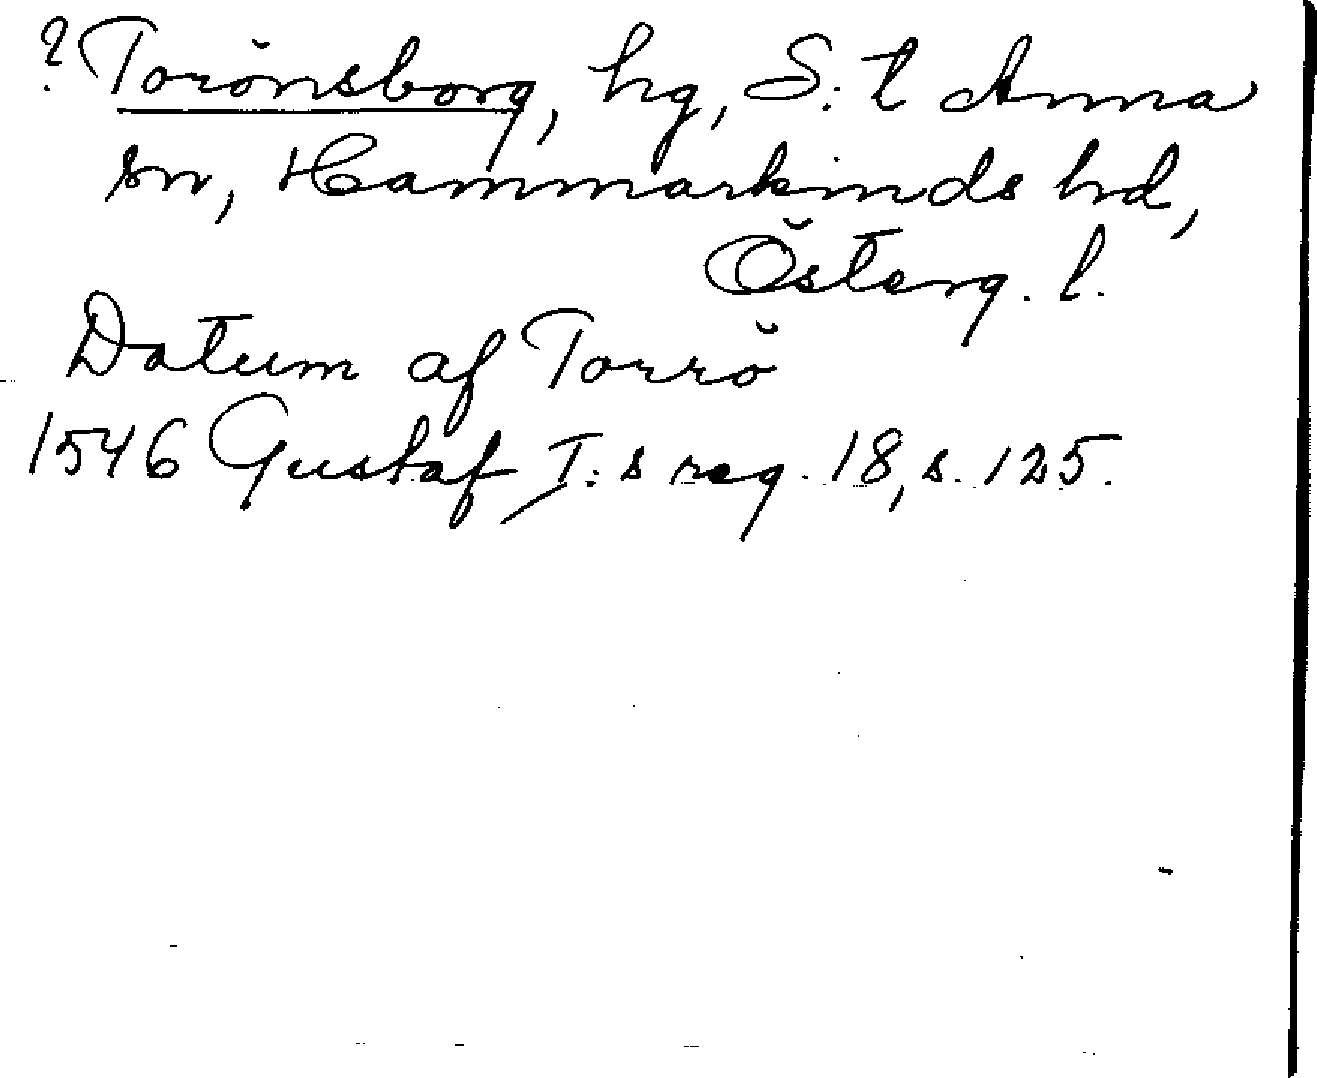 ? Torönsborg, hg, S:t Anna
sn, Hammarkinds hd,
Österg. l.
Datum af Torrö
1546 Gustaf I:s reg. 18, s. 125.